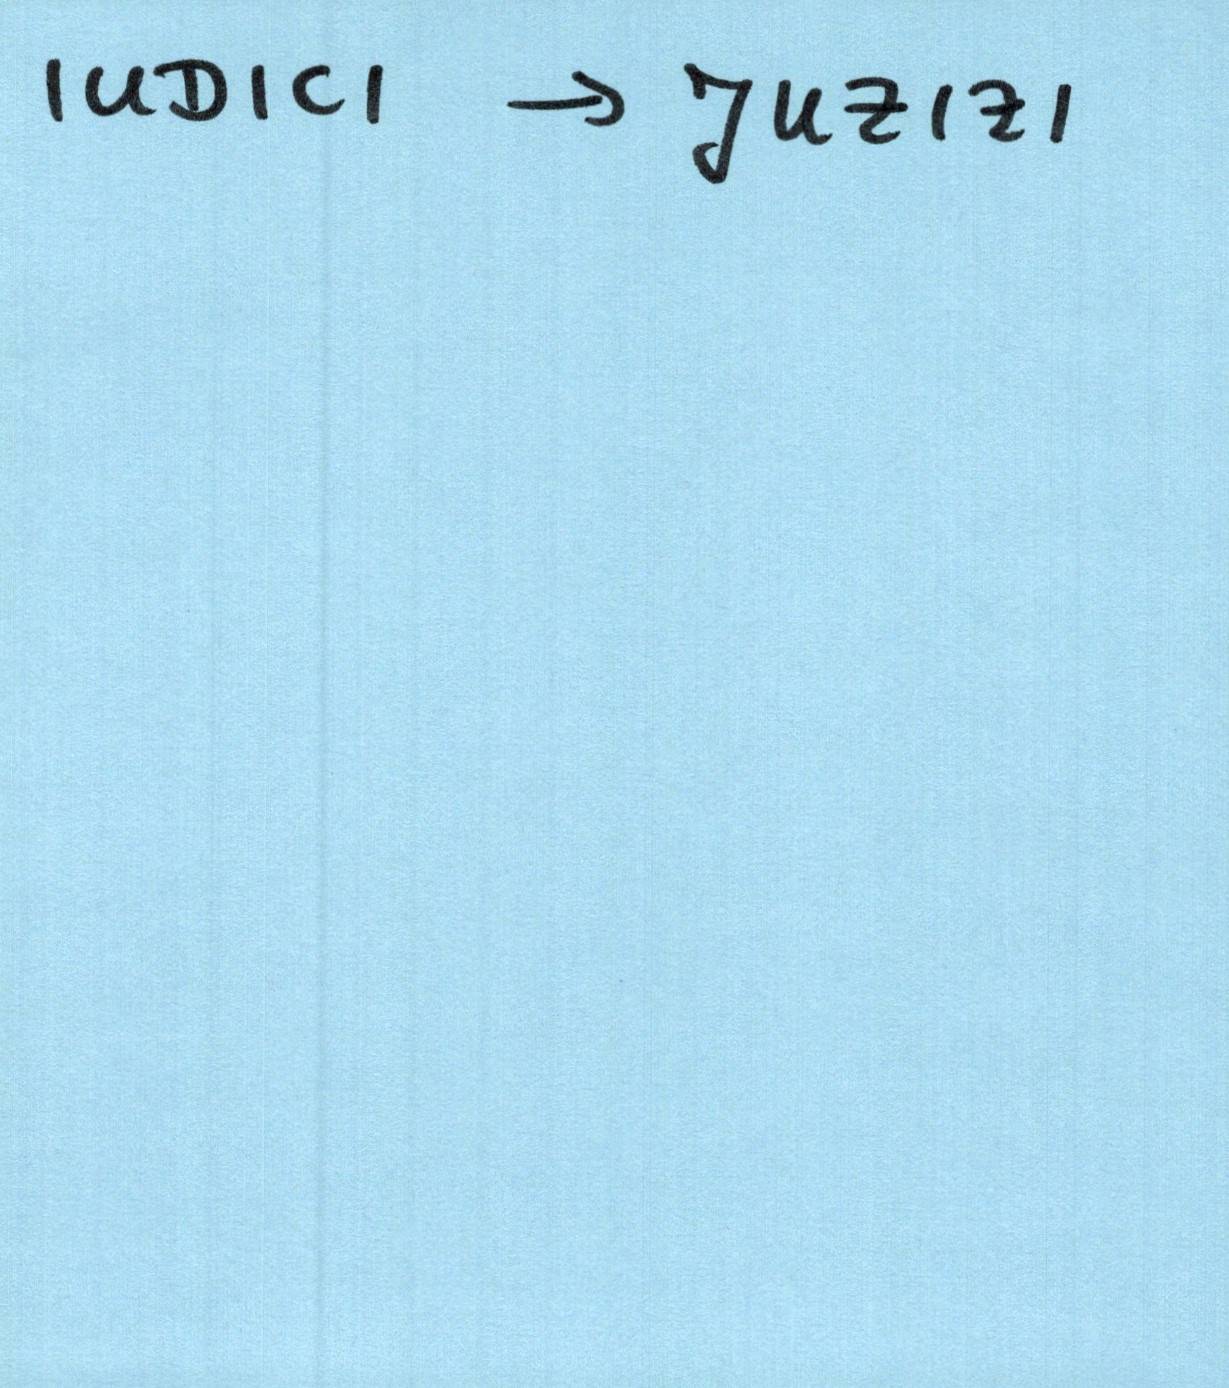 IUDICI → JUZIZI